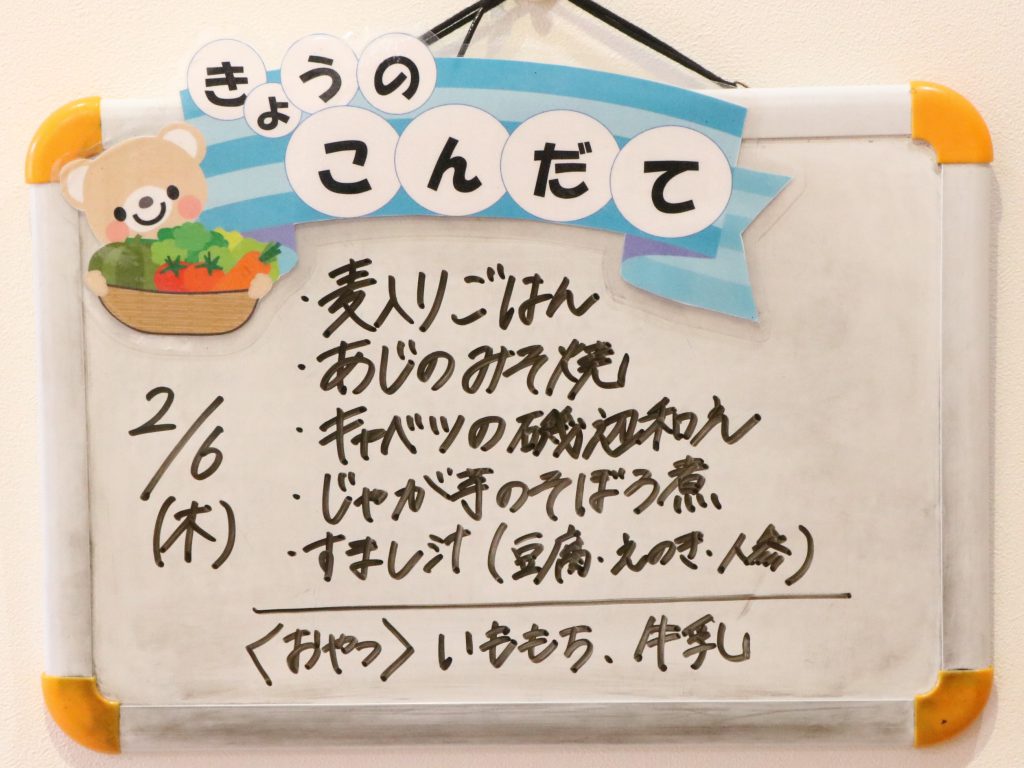 きょうの
こんだて
2/6
(木)
・麦入りごはん
・あじのみそ焼
・キャベツの磯辺和え
・じゃが芋のそぼろ煮
・すまし汁(豆腐・えのき・人参)
〈おやつ〉いももち、牛乳